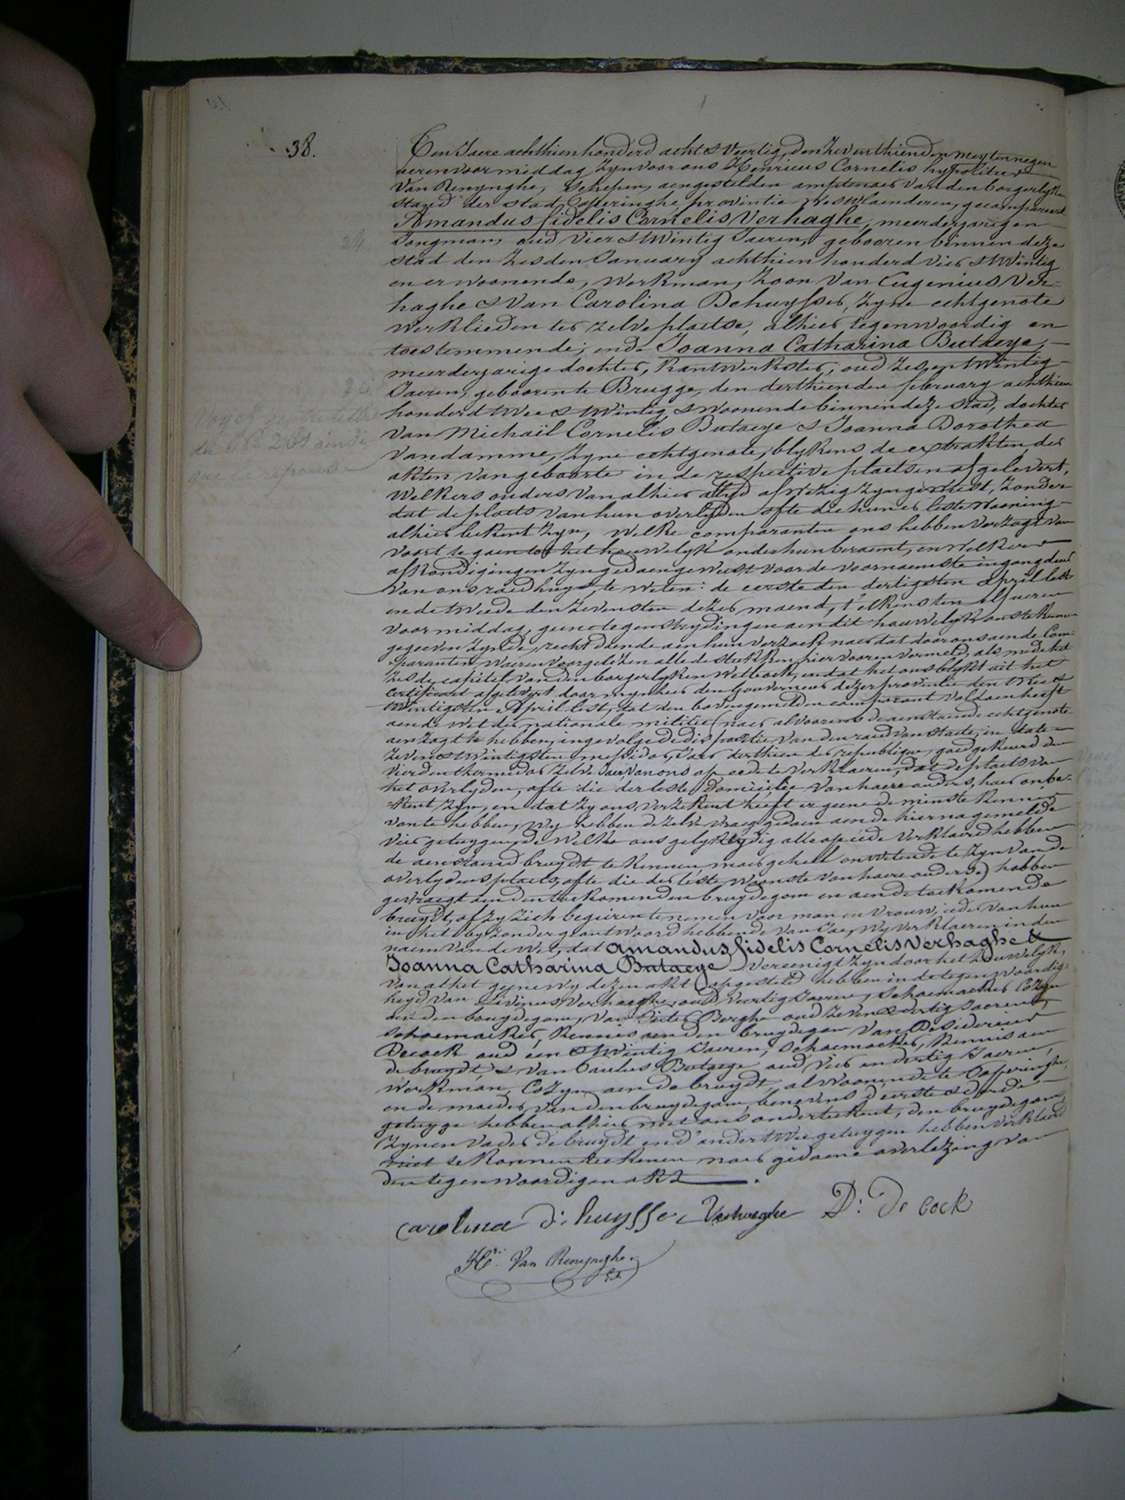 38.
Ten Jaere achthien honderd acht & Veertig, den Zeventhienden Mey ten negen
ueren voormiddag Zyn voor ons Henricus Cornelis hypolitus
Van Renynghe, Schepen, aengestelden amptenaer van den borgerlyken
stand der stad Poperinghe provintie Westvlaenderen, gecompareerd
Amandus fidelis Cornelis Verhaghe, meerderjarigen
24 Jongman, oud Vier & Twintig Jaeren, gebooren binnen deze
stad den Zesden January achthien honderd Vier & Twintig
en er woonende, Werkman, Zoon Van Eugenius Ver-
haghe & Van Carolina Dehuysser, Zyne echtgenote
Werklieden ter Zelve plaetse, alhier tegenwoordig en
toestemmende; ende Joanna Catharina Butaeye,
meerderjarige dochter, Kantwerkster, oud Zes en Twintig
Jaeren, geboren te Brugge, den derthienden february achthien
honderd Twee & Twintig, & woonende binnen deze stad, dochter
Van Michaël Cornelis Butaeye & Joanna Dorothea
Vandamme, Zyne echtgenote, blykens de extrakten der
akten van geboorte in de respective plaetsen afgelevert,
Welkers ouders van alhier altyd afwezig Zyn geweest, Zonder
dat de plaets van hun overlyden ofte die hunner leste Wooning
alhier bekent Zyn, Welke comparanten ons hebben Verzogt van
Voort te gaen tot het houwelyk onder hun beraemt, en Welkers
afkondigingen Zyn gedaen geweest Voor de Voornaemste ingang deur
Van ons raedhuys, te Weten: de eerste den dertigsten april lest
en de Tweede den Zevensten dezer maend, t'elkens ten elf ueren
Voormiddag, geene tegenstrydingen aen dit houwelyk ons te kennen
gegeven Zynde, recht doende aen hun Verzoek naer dat door ons aen de Com-
paranten Waeren Voorgelezen alle de stukken hier Vooren Vermeld, als mede het
Zesde capitel Van den borgerlyken Wetboek, en dat het ons blykt uit het
certificaet afgelevert door mynheer den Gouverneur dezer provintie den Twee &
Twintigsten April lest, dat den bovengemelden comparant Voldaen heeft
aen de Wet der nationale militie, naer alvoorens de aenstaende echtgenote
aenzogt te hebben, ingevolge de dispositie Van den raed Van State, in date
Zeven & Twintigsten messidor, Jaer derthien der republique, goedgekeurd den
Vierden thermidor Zelve Jaer Van ons op eede te Verklaeren, dat de plaets Van
het overlyden, ofte die der leste Domicilie Van haere ouders, haer onbe-
kent Zyn, en dat Zy ons Verzekert heeft er geene de minste kennis
Van te hebben, Wy hebben dezelve Vraeg gedaen aen de hiernagemelde
Vier getuygen, de Welke ons gelykluydig alle op eede Verklaerd hebben
de aenstaende bruydt te kennen, maer geheel onwetende te Zyn Van de
overlydens plaets, ofte die der leste Woonste Van haere ouders, hebben
gevraegt aen den toekomenden bruydegom en aen de toekomende
bruydt, of Zy Zich begeiren te nemen Voor man en Vrouw; ieder Van hun
in het byzonder geantwoord hebbende Van Jae, Wy Verklaeren in den
naem Van de Wet, dat Amandus fidelis Cornelis Verhaghe &
Joanna Catharina Butaeye Vereenigt Zyn door het Houwelyk,
Van al het gene Wy dezen akt opgesteld hebben in de tegenwoordig-
heyd Van Livinus Verhaeghe, oud Veertig Jaeren, Schoemaeker Cozyn
aen den bruydegom, Van Pieter Berghe oud Zeven & dertig Jaeren,
Schoemaeker, Kennis aen den bruydegom Van Desiderius
Decock oud een & Twintig Jaeren, Schoemaeker, Kennis aen
de bruydt, & Van Paulus Butaeye oud Vier en dertig Jaeren,
Werkman, Cozyn aen de bruydt, al Woonende te Poperinghe,
en de moeder Van den bruydegom, benevens d'eerste & derde
getuyge hebben alhier met ons onderteekent, den bruydegom,
Zynen Vader, de bruydt end'ander twee getuygen hebben Verklaerd
niet te Konnen teekenen naer gedaene overlezing Van
den tegenwoordigen akt.
carolina d'huysser Verhaeghe D: De cock
Hri. Van Renynghe